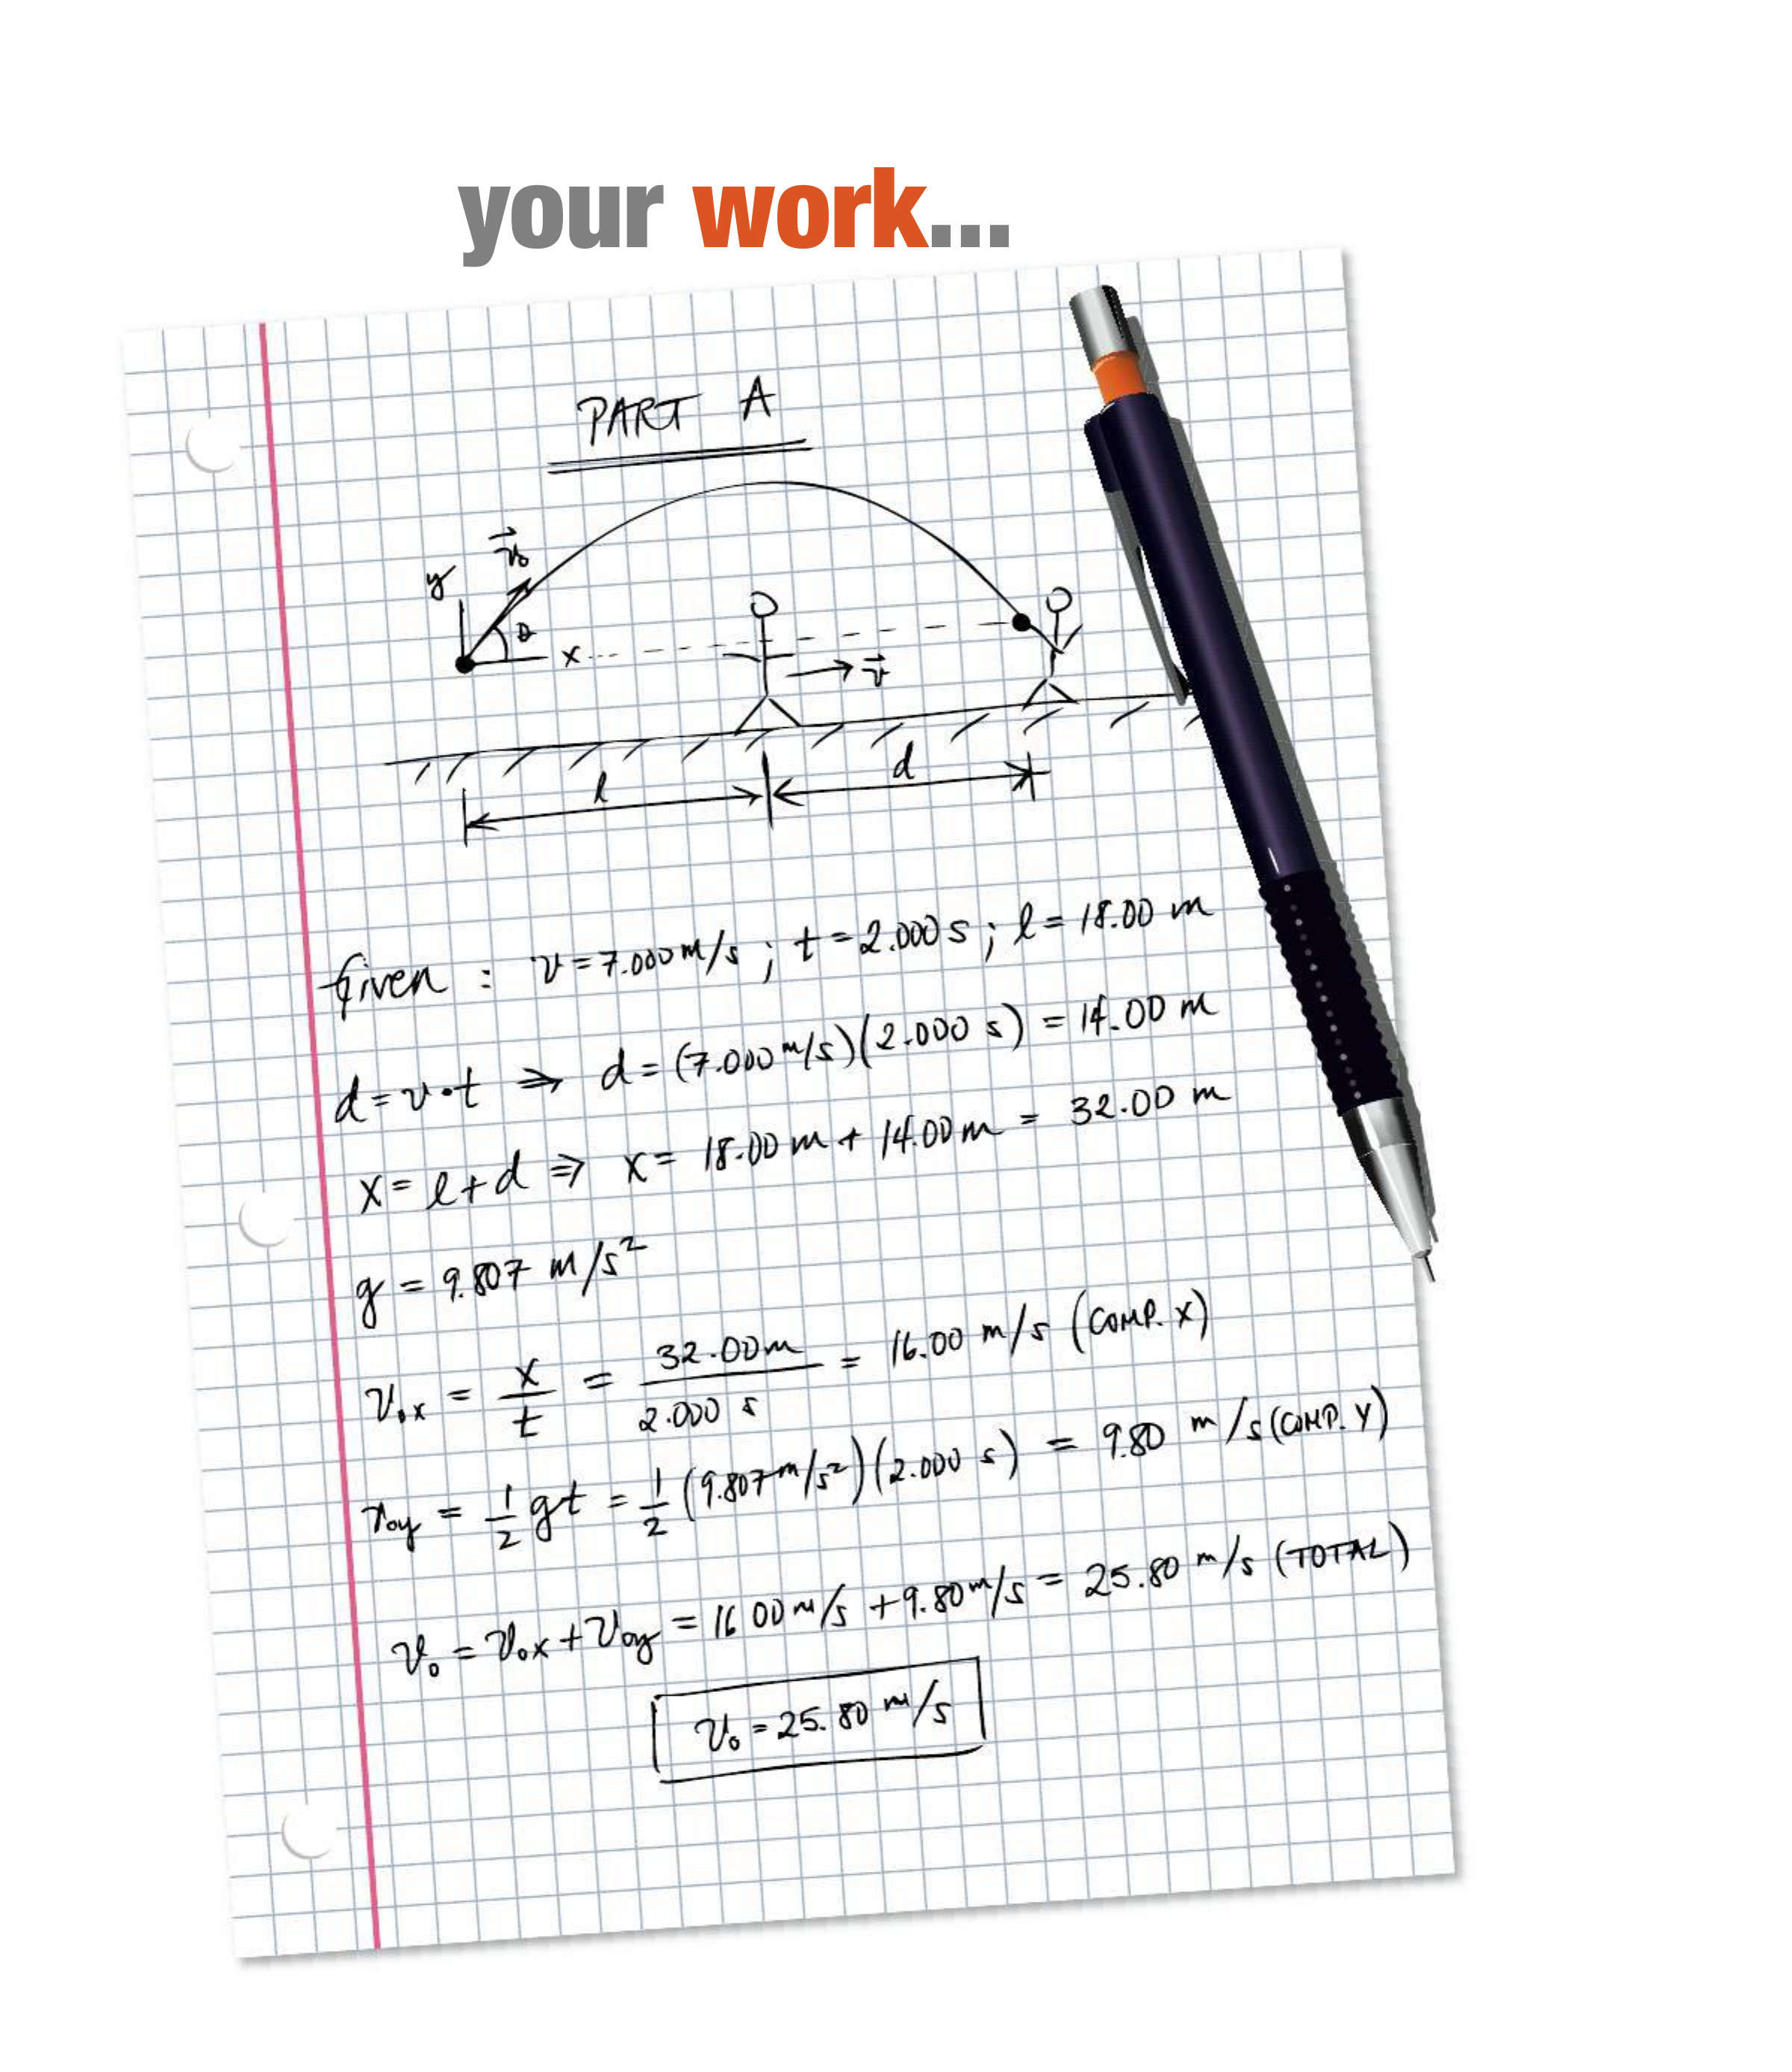 your work...
PART A
y
v₀
θ
x
v
l
d
Given : v = 7.000 m/s ; t = 2.000 s ; l = 18.00 m
d = v·t ⇒ d = (7.000 m/s)(2.000 s) = 14.00 m
x = l + d ⇒ x = 18.00 m + 14.00 m = 32.00 m
g = 9.807 m/s²
v₀ₓ = x/t = 32.00 m / 2.000 s = 16.00 m/s (COMP. X)
v₀y = 1/2 gt = 1/2 (9.807 m/s²)(2.000 s) = 9.80 m/s (COMP. Y)
v₀ = v₀ₓ + v₀y = 16.00 m/s + 9.80 m/s = 25.80 m/s (TOTAL)
v₀ = 25.80 m/s